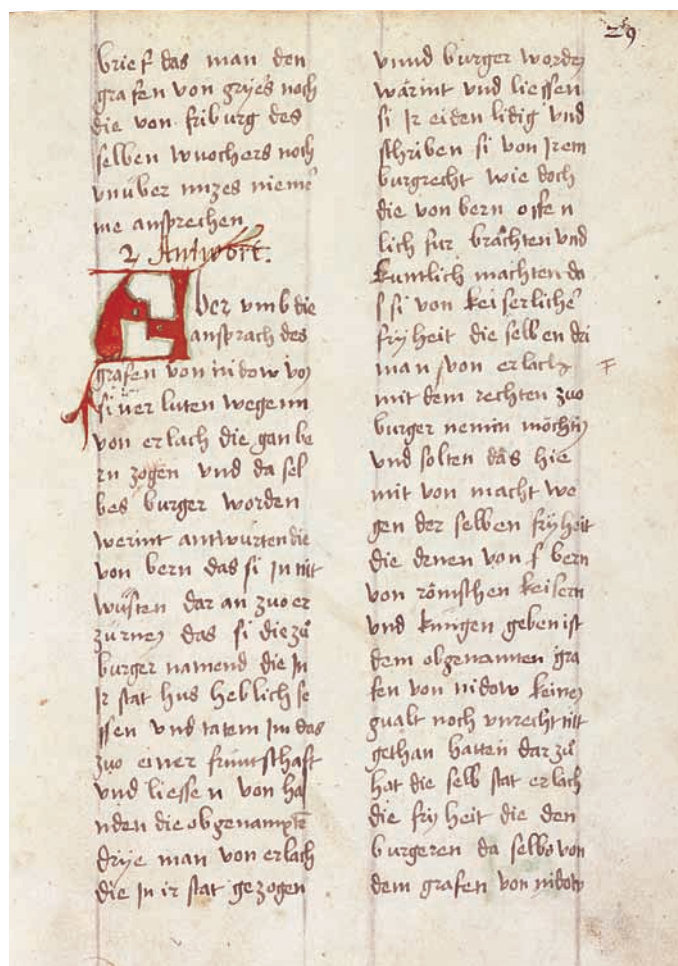 29
brief das man den
grafen von gryers noch
die von friburg des
selben wuochers noch
vnuber nuzes nieme
me ansprechen
2 Antwort.
Aber vmb die
ansprach des
grafen von nidow von
siner luten wegenn
von erlach die gan be
rn zogen vnd da sel
bes burger worden
werint antwurten die
von bern das si In nit
wusten dar an zuo er
zurnen das si die zů
burger namend die In
Ir stat hus heblich se
ssen vnd tatem Im das
zuo einer fruntschaft
vnd liessen von ha
nden die obgenampten
drye man von erlach
die In ir stat gezogen
vnnd burger worden
wärint vnd liessen
si Ir eiden lidig vnd
schriben si von Irem
burgrecht wie doch
die von bern offen
lich fur brachten vnd
kuntlich machten da
s si von keiserliche
fryheit die selben dri
man von erlach
mit dem rechten zuo
burger nemin möchtin
vnd solten das hie
mit von macht we
gen der selben fryheit
die denen von bern
von römschen keisern
vnd kungen geben ist
dem obgenanten gra
fen von nidow keinen
gualt noch vnrecht nit
gethan hatten dar zů
hat die selb stat erlach
die fryheit die den
burgeren da selbs von
dem grafen von nidow